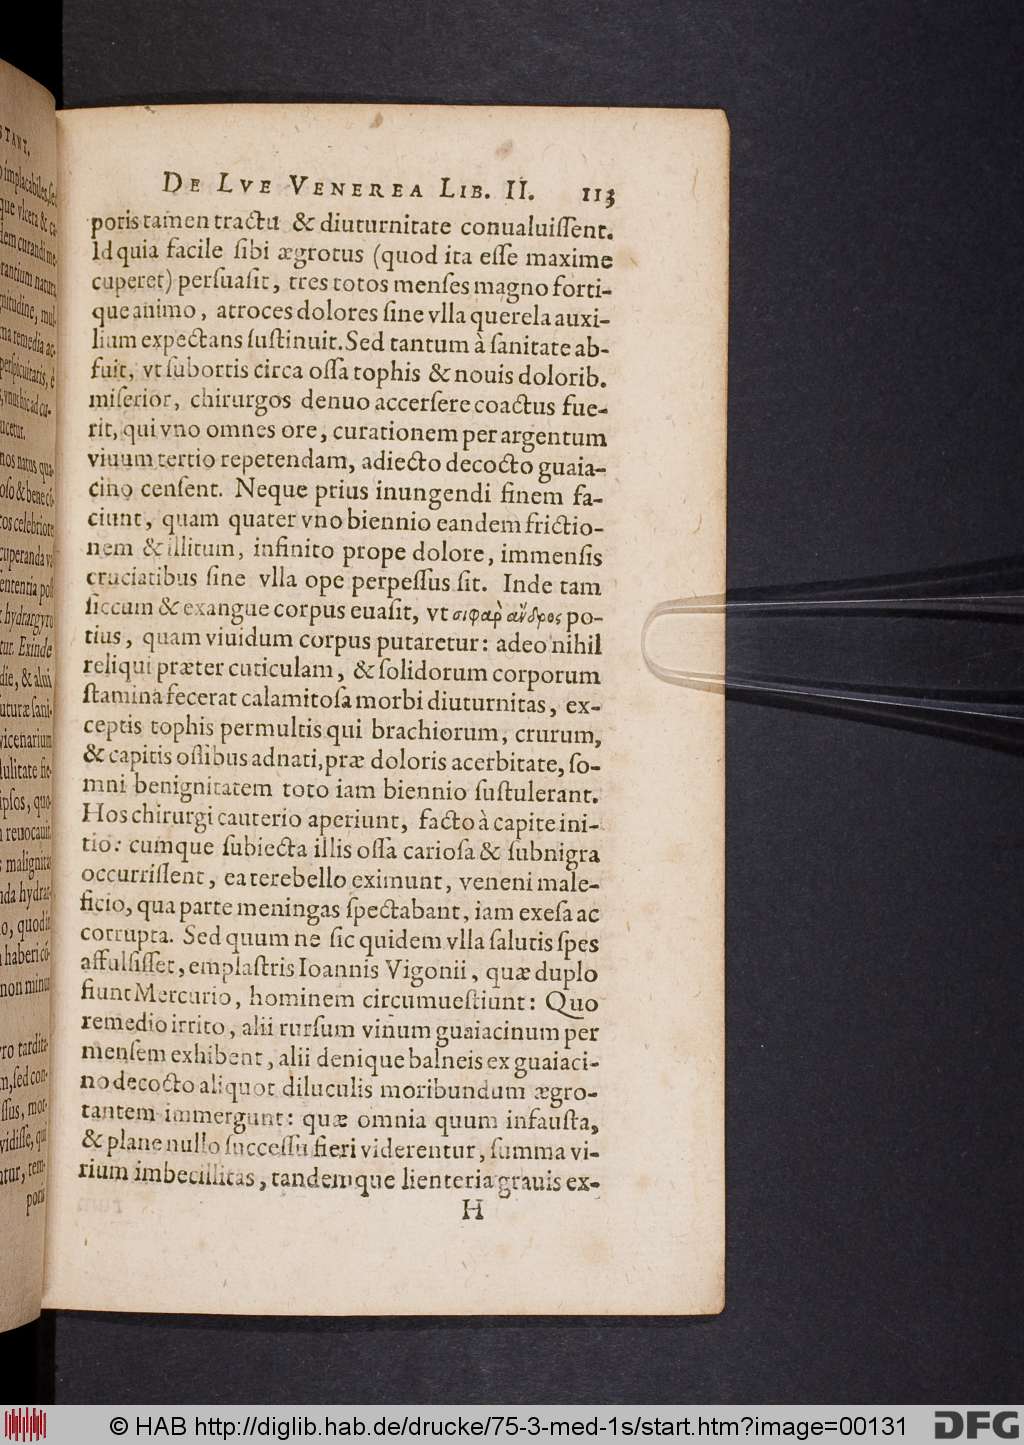 STANT.
implacabiles, sed
que vlcera & ca-
dem curandi me-
rantium natura
nitudine, mul-
na remedia ac-
perspicuitatis, è
, vnus hic ad cu-
ucetur.
nos natus qua-
oso & bene cō-
tos celebriore
cuperanda va
ententia post
hydrargyro
tur. Exinde
die, & aluū
uturæ sani-
vicenarium
dulitate fie-
ipsos, quo-
reuocauit
malignita
nda hydrar-
o, quod in
haberi cō-
non minus
ro tardita-
m, sed con-
ssus, mor-
vidisse, qui
ntur, tem-
poris
DE LVE VENEREA LIB. II. 113
poris tamen tractu & diuturnitate conualuiſſent.
Id quia facile ſibi ægrotus (quod ita eſſe maxime
cuperet) perſuaſit, tres totos menſes magno forti-
que animo, atroces dolores ſine vlla querela auxi-
lium expectans ſuſtinuit. Sed tantum à ſanitate ab-
fuit, vt ſubortis circa oſſa tophis & nouis dolorib.
miſerior, chirurgos denuo accerſere coactus fue-
rit, qui vno omnes ore, curationem per argentum
viuum tertio repetendam, adiecto decocto guaia-
cino cenſent. Neque prius inungendi finem fa-
ciunt, quam quater vno biennio eandem frictio-
nem & illitum, infinito prope dolore, immenſis
cruciatibus ſine vlla ope perpeſſus ſit. Inde tam
ſiccum & exangue corpus euaſit, vt σιφαρ̀ ἀνδρος po-
tius, quam viuidum corpus putaretur: adeo nihil
reliqui præter cuticulam, & ſolidorum corporum
ſtamina fecerat calamitoſa morbi diuturnitas, ex-
ceptis tophis permultis qui brachiorum, crurum,
& capitis oſſibus adnati, præ doloris acerbitate, ſo-
mni benignitatem toto iam biennio ſuſtulerant.
Hos chirurgi cauterio aperiunt, facto à capite ini-
tio: cumque ſubiecta illis oſſa carioſa & ſubnigra
occurriſſent, ea terebello eximunt, veneni male-
ficio, qua parte meningas ſpectabant, iam exeſa ac
corrupta. Sed quum ne ſic quidem vlla ſalutis ſpes
affulſiſſet, emplaſtris Ioannis Vigonii, quæ duplo
fiunt Mercurio, hominem circumueſtiunt: Quo
remedio irrito, alii rurſum vinum guaiacinum per
menſem exhibent, alii denique balneis ex guaiaci-
no decocto aliquot diluculis moribundum ægro-
tantem immergunt: quæ omnia quum infauſta,
& plane nullo ſucceſſu fieri viderentur, ſumma vi-
rium imbecillitas, tandemque lienteria grauis ex-
H
© HAB http://diglib.hab.de/drucke/75-3-med-1s/start.htm?image=00131
DFG